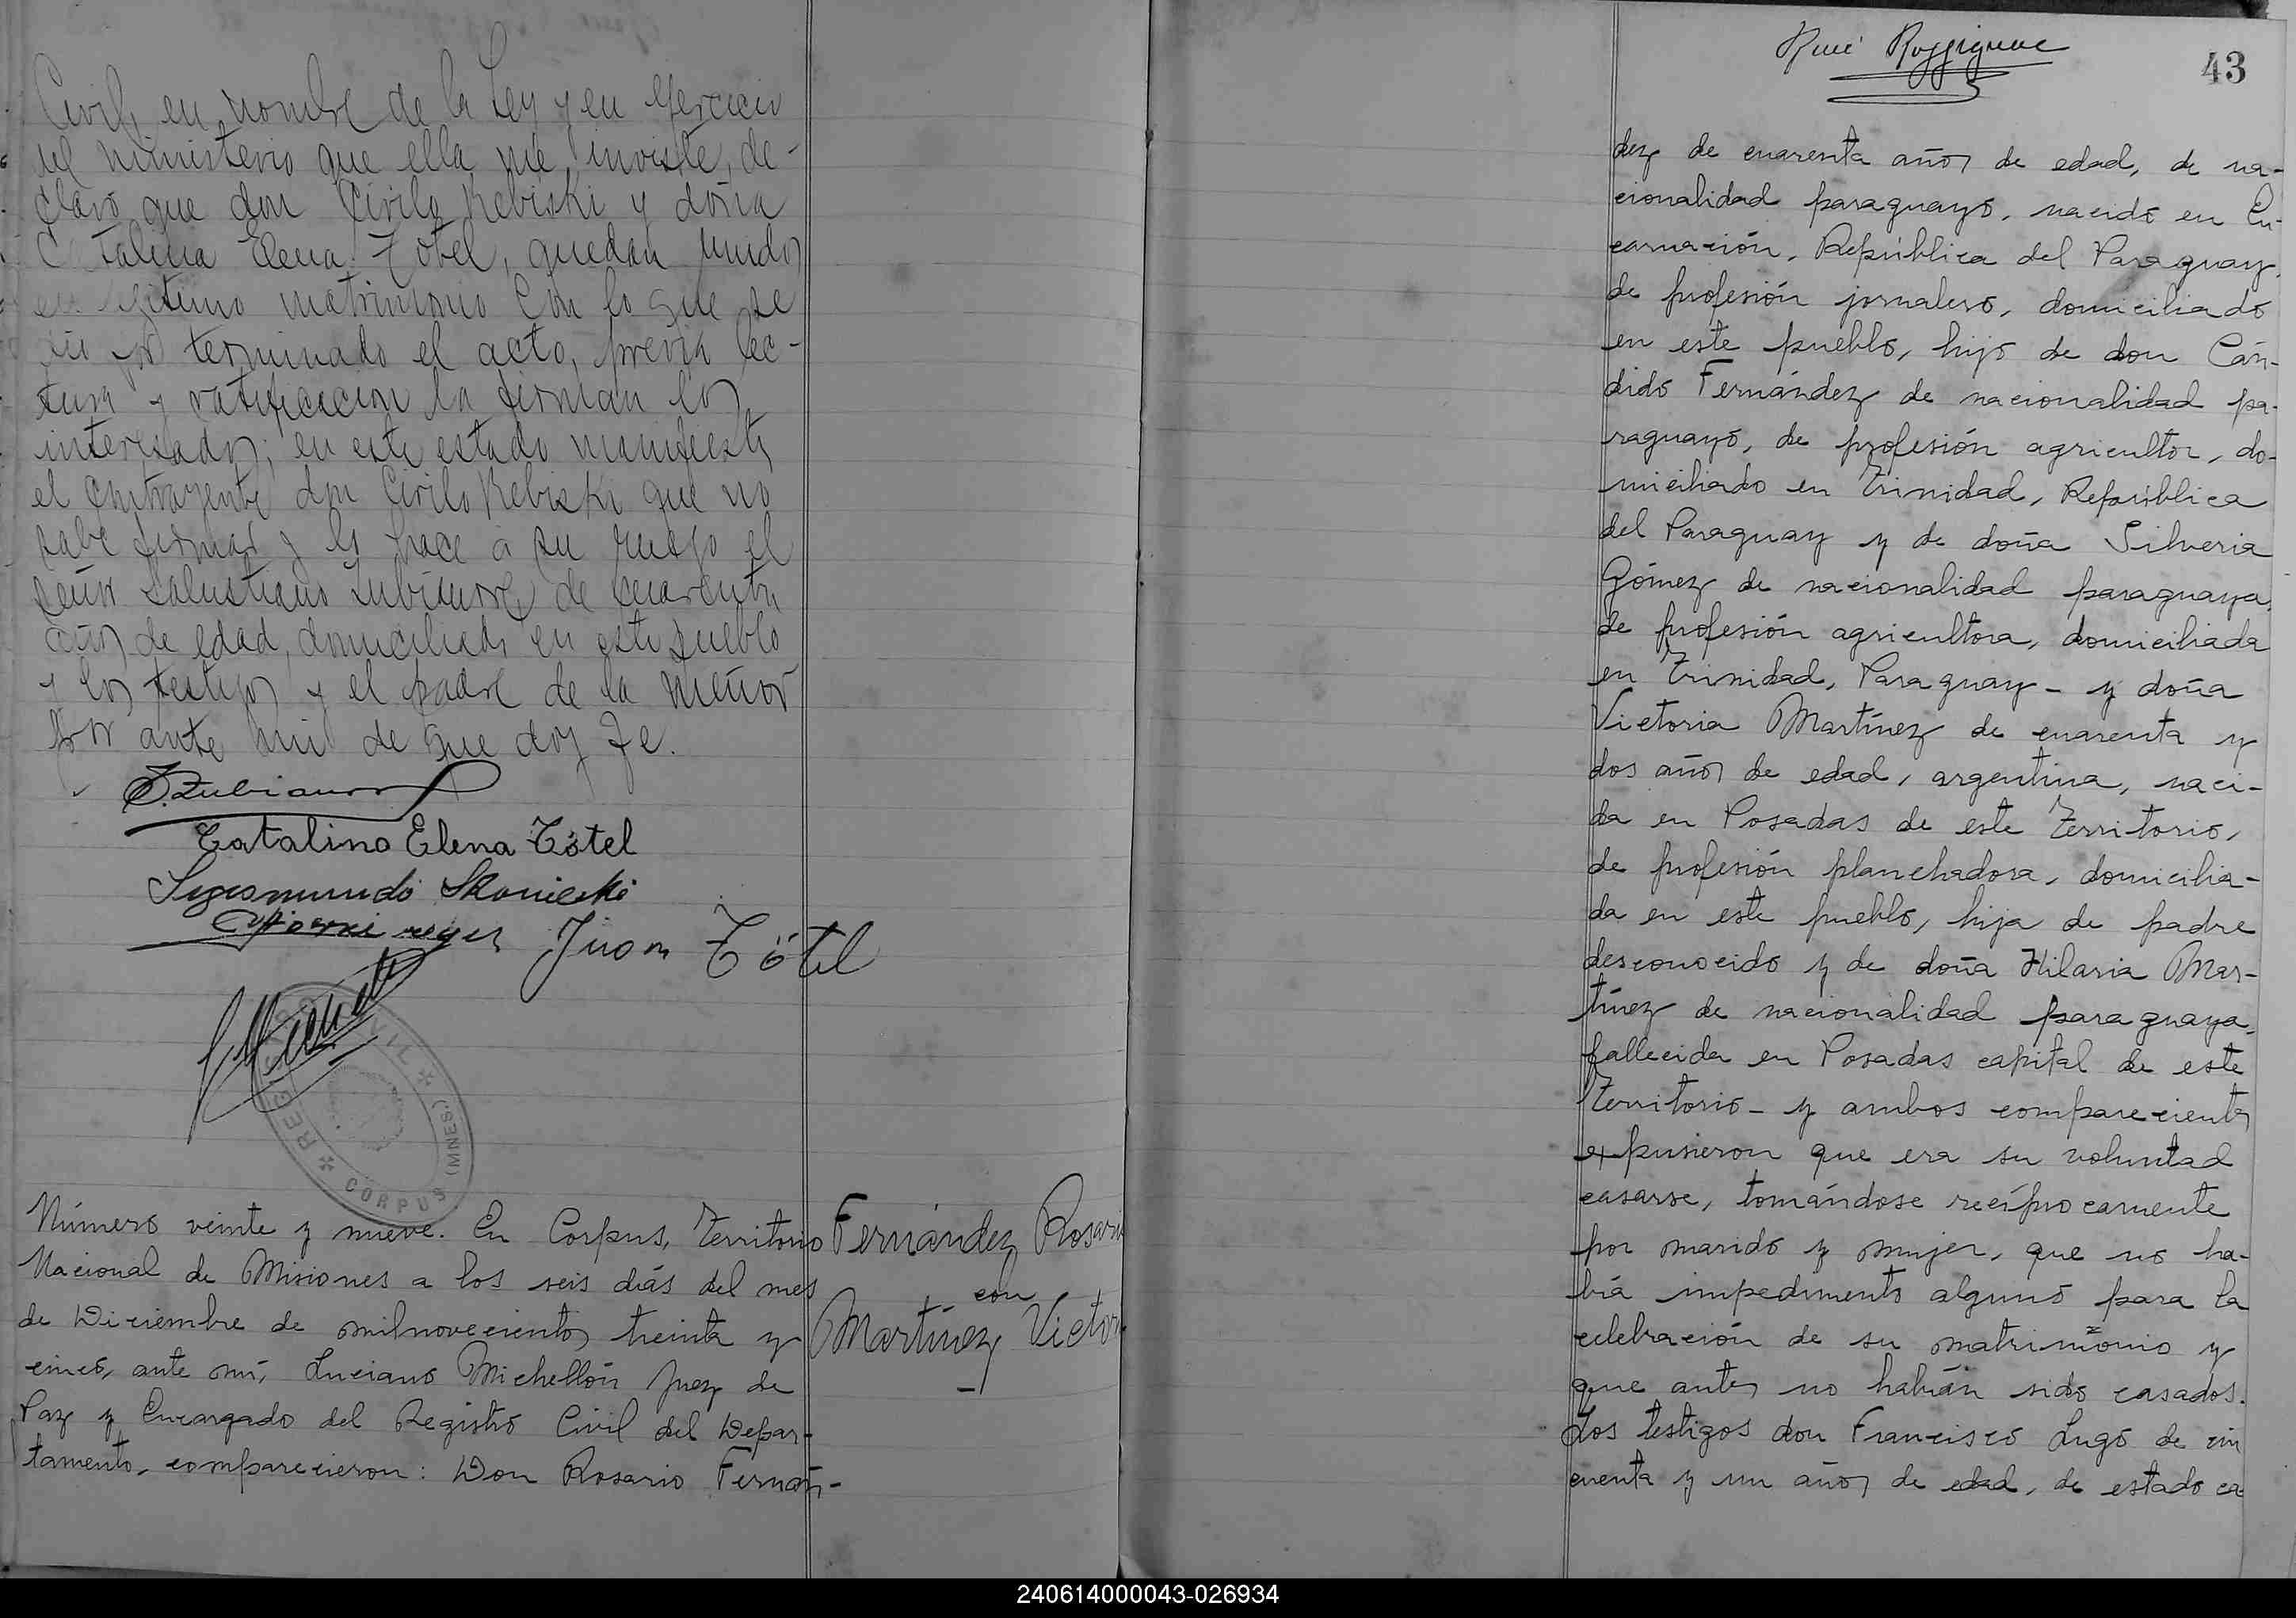 Civil, en nombre de la Ley y en ejercicio
del ministerio que ella me inviste, de-
claro que don Cirilo Rebiski y doña
Catalina Elena Tötel, quedan unidos
en legitimo matrimonio con lo que se
dio por terminado el acto, previa lec-
tura y ratificacion la firman los
interesados; en este estado manifiesta
el contrayente don Cirilo Rebiski que no
sabe firmar y lo hace a su ruego el
señor Salustiano Zubiaurre de cuarenta
años de edad, domiciliado en este pueblo
y los testigos y el padre de la menor
por ante mi de que doy fe.
S. Zubiaurre
Catalina Elena Tötel
Segismundo
Juan Tötel
REGISTRO CIVIL
CORPUS (MNES.)
Número veinte y nueve. En Corpus, Territorio
Nacional de Misiones a los seis días del mes
de Diciembre de milnovecientos treinta y
cinco, ante mí, Luciano Michellón Juez de
Paz y Encargado del Registro Civil del Depar-
tamento, comparecieron: Don Rosario Fernán-
Fernández Rosario
con
Martínez Victor
43
dez de cuarenta años de edad, de na-
cionalidad paraguayo, nacido en En-
carnación, República del Paraguay,
de profesión jornalero, domiciliado
en este pueblo, hijo de don Cán-
dido Fernández de nacionalidad pa-
raguayo, de profesión agricultor, do-
miciliado en Trinidad, República
del Paraguay y de doña Silveria
Gómez de nacionalidad paraguaya,
de profesión agricultora, domiciliada
en Trinidad, Paraguay - y doña
Victoria Martínez de cuarenta y
dos años de edad, argentina, naci-
da en Posadas de este Territorio,
de profesión planchadora, domicilia-
da en este pueblo, hija de padre
desconocido y de doña Hilaria Mar-
tínez de nacionalidad paraguaya,
fallecida en Posadas capital de este
Territorio - y ambos comparecientes
expusieron que era su voluntad
casarse, tomándose recíprocamente
por marido y mujer, que no ha-
bía impedimento alguno para la
celebración de su matrimonio y
que antes no habían sido casados.
Los testigos don Francisco Lugo de cin
cuenta y un años de edad, de estado ca-
240614000043-026934